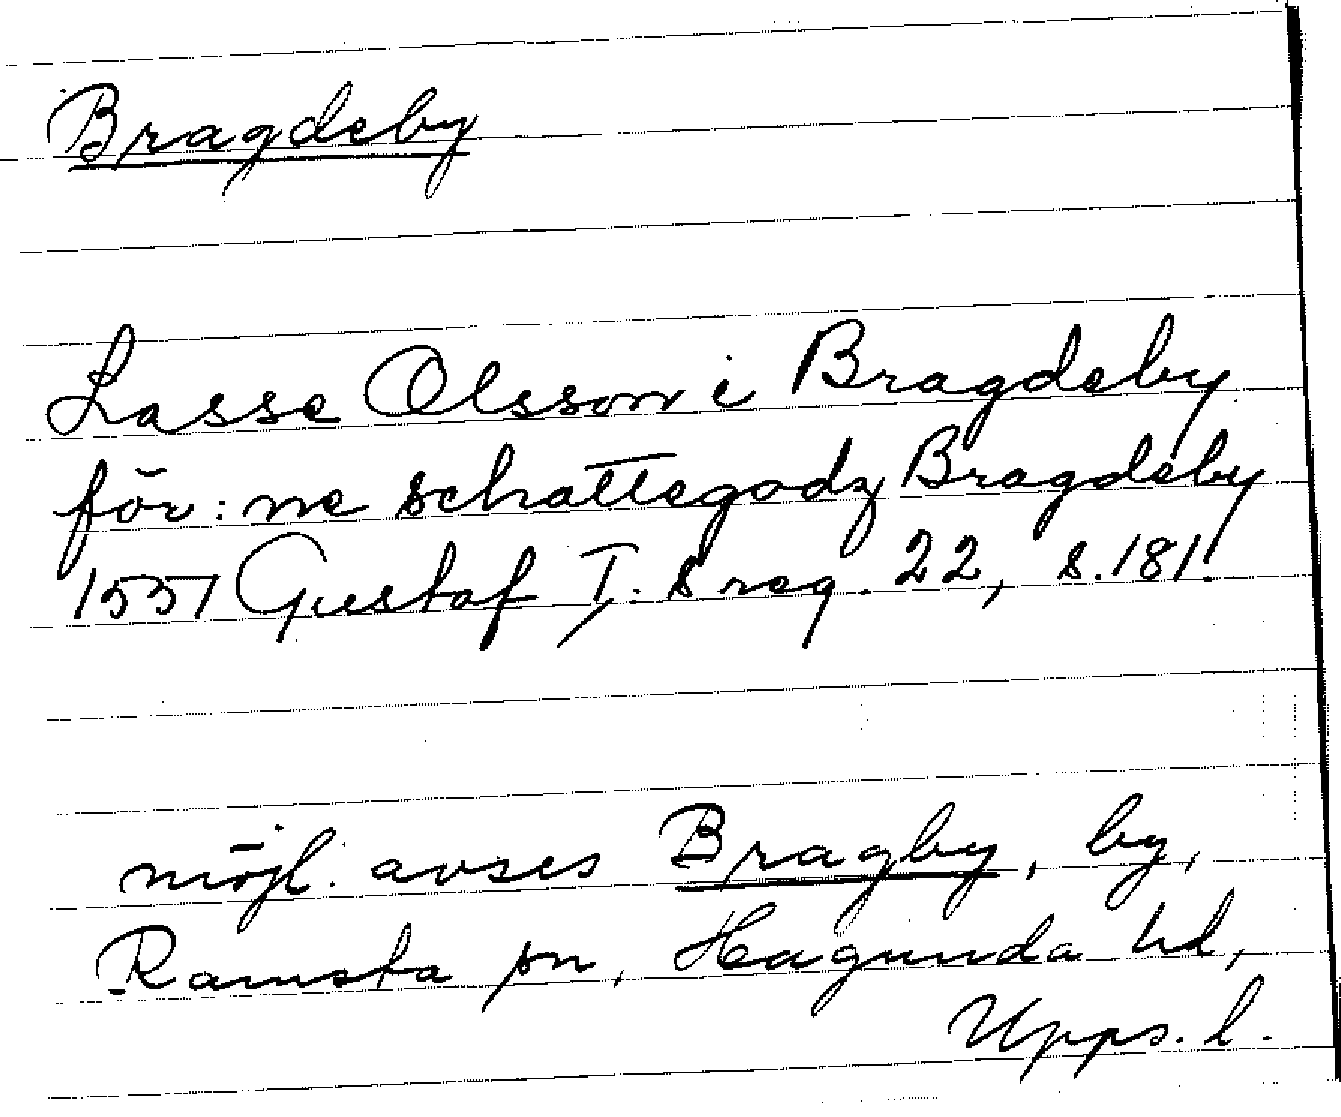 Bragdeby
Lasse Olsson i Bragdeby
för:ne schattegodz Bragdeby
1551 Gustaf I:s reg. 22, s. 181.
möjl. avses Bragby, by,
Ramsta sn, Hagunda hd,
Upps. l.